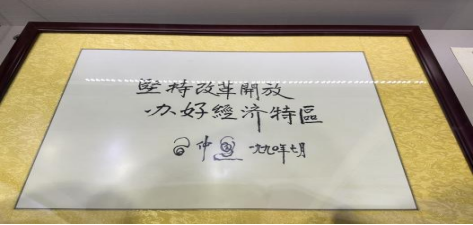 坚持改革開放
办好經济特區
习仲勋 一九九〇年七月